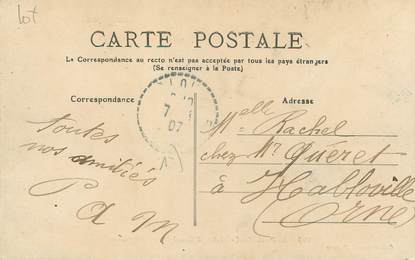 lot
CARTE POSTALE
La Correspondance au recto n'est pas acceptée par tous les pays étrangers
(Se renseigner à la Poste)
Correspondance
Adresse
7
07
toutes
nos amitiés
P a M
Melle Rachel
chez Mr Guéret
à Habloville
(Orne)